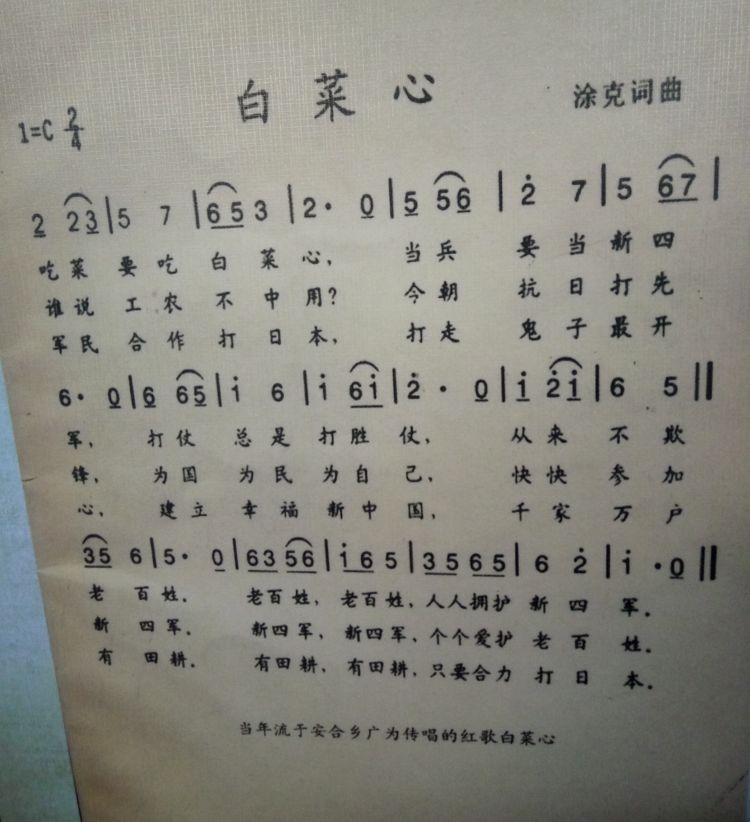 白菜心
涂克词曲
1=C 2/4
2 23|5 7|65 3|2· 0|5 56|2̇ 7|5 67|
吃菜要吃白菜心，当兵要当新四
谁说工农不中用？今朝抗日打先
军民合作打日本，打走鬼子最开
6· 0|6 65|i 6|i 6i|2̇· 0|i 2̇i|6 5‖
军，打仗总是打胜仗，从来不欺
锋，为国为民为自己，快快参加
心，建立幸福新中国，千家万户
35 6|5· 0|63 56|i6 5|35 65|6 2̇|i ·0‖
老百姓。老百姓，老百姓，人人拥护新四军。
新四军。新四军，新四军，个个爱护老百姓。
有田耕。有田耕，有田耕，只要合力打日本。
当年流于安合乡广为传唱的红歌白菜心